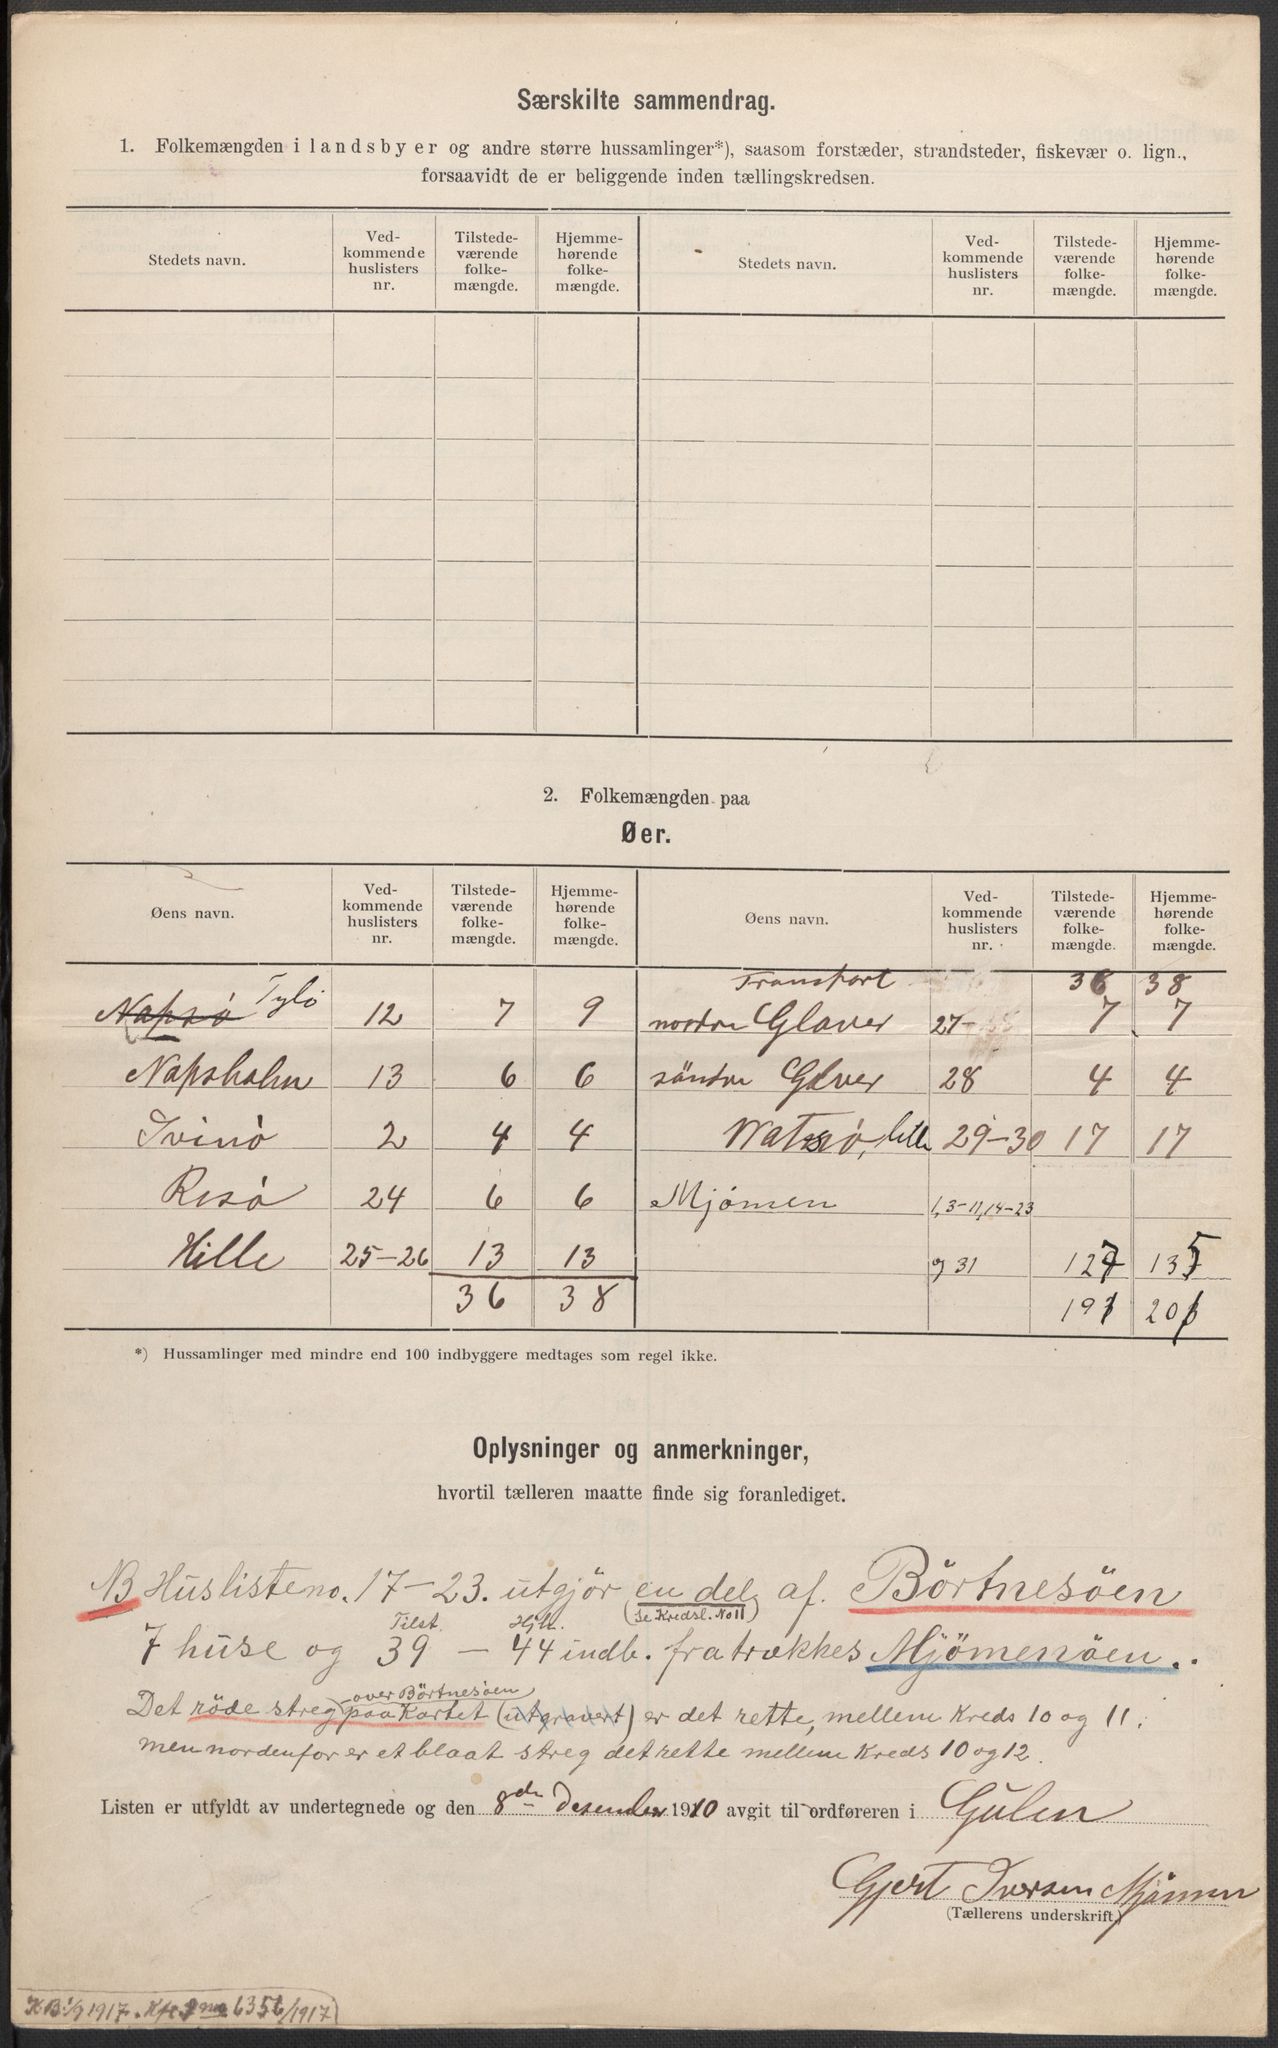 Særskilte sammendrag.
1. Folkemængden i landsbyer og andre større hussamlinger*), saasom forstæder, strandsteder, fiskevær o. lign.,
forsaavidt de er beliggende inden tællingskredsen.
Stedets navn. Ved-kommende huslisters nr. Tilstede-værende folke-mængde. Hjemme-hørende folke-mængde. Stedets navn. Ved-kommende huslisters nr. Tilstede-værende folke-mængde. Hjemme-hørende folke-mængde.
2. Folkemængden paa
Øer.
Øens navn. Ved-kommende huslisters nr. Tilstede-værende folke-mængde. Hjemme-hørende folke-mængde. Øens navn. Ved-kommende huslisters nr. Tilstede-værende folke-mængde. Hjemme-hørende folke-mængde.
Transport 36 38
Napsö Tylö 12 7 9 nordre Glaver 27 7 7
Napsholm 13 6 6 söndre Glaver 28 4 4
Ivinö 2 4 4 Watsö, lille 29-30 17 17
Risö 24 6 6 Mjömen 1,3-11,14-23
Hille 25-26 13 13 og 31 127 135
36 38 191 201
*) Hussamlinger med mindre end 100 indbyggere medtages som regel ikke.
Oplysninger og anmerkninger,
hvortil tælleren maatte finde sig foranlediget.
NB Huslisteno. 17-23. utgjör en del af. Börtnesöen
Tilst. Hjh. (Se Kredsl. No 11)
7 huse og 39 - 44 indb. fratrækkes Mjömenöen..
over Börtnesöen
Det röde streg paa Kartet (utgravert) er det rette, mellem Kreds 10 og 11;
men nordenfor er et blaat streg det rette mellem Kreds 10 og 12.
Listen er utfyldt av undertegnede og den 8de Desember 1910 avgit til ordføreren i Gulen
Gjert Iversen Mjömen
(Tællerens underskrift)
KB 1/9 1917. 6356/1917